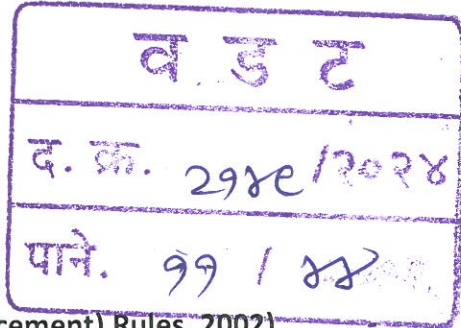 व ड ट
द. क्र. २१४९/२०२४
पाने. ११ / ४४
cement) Rules, 2002)